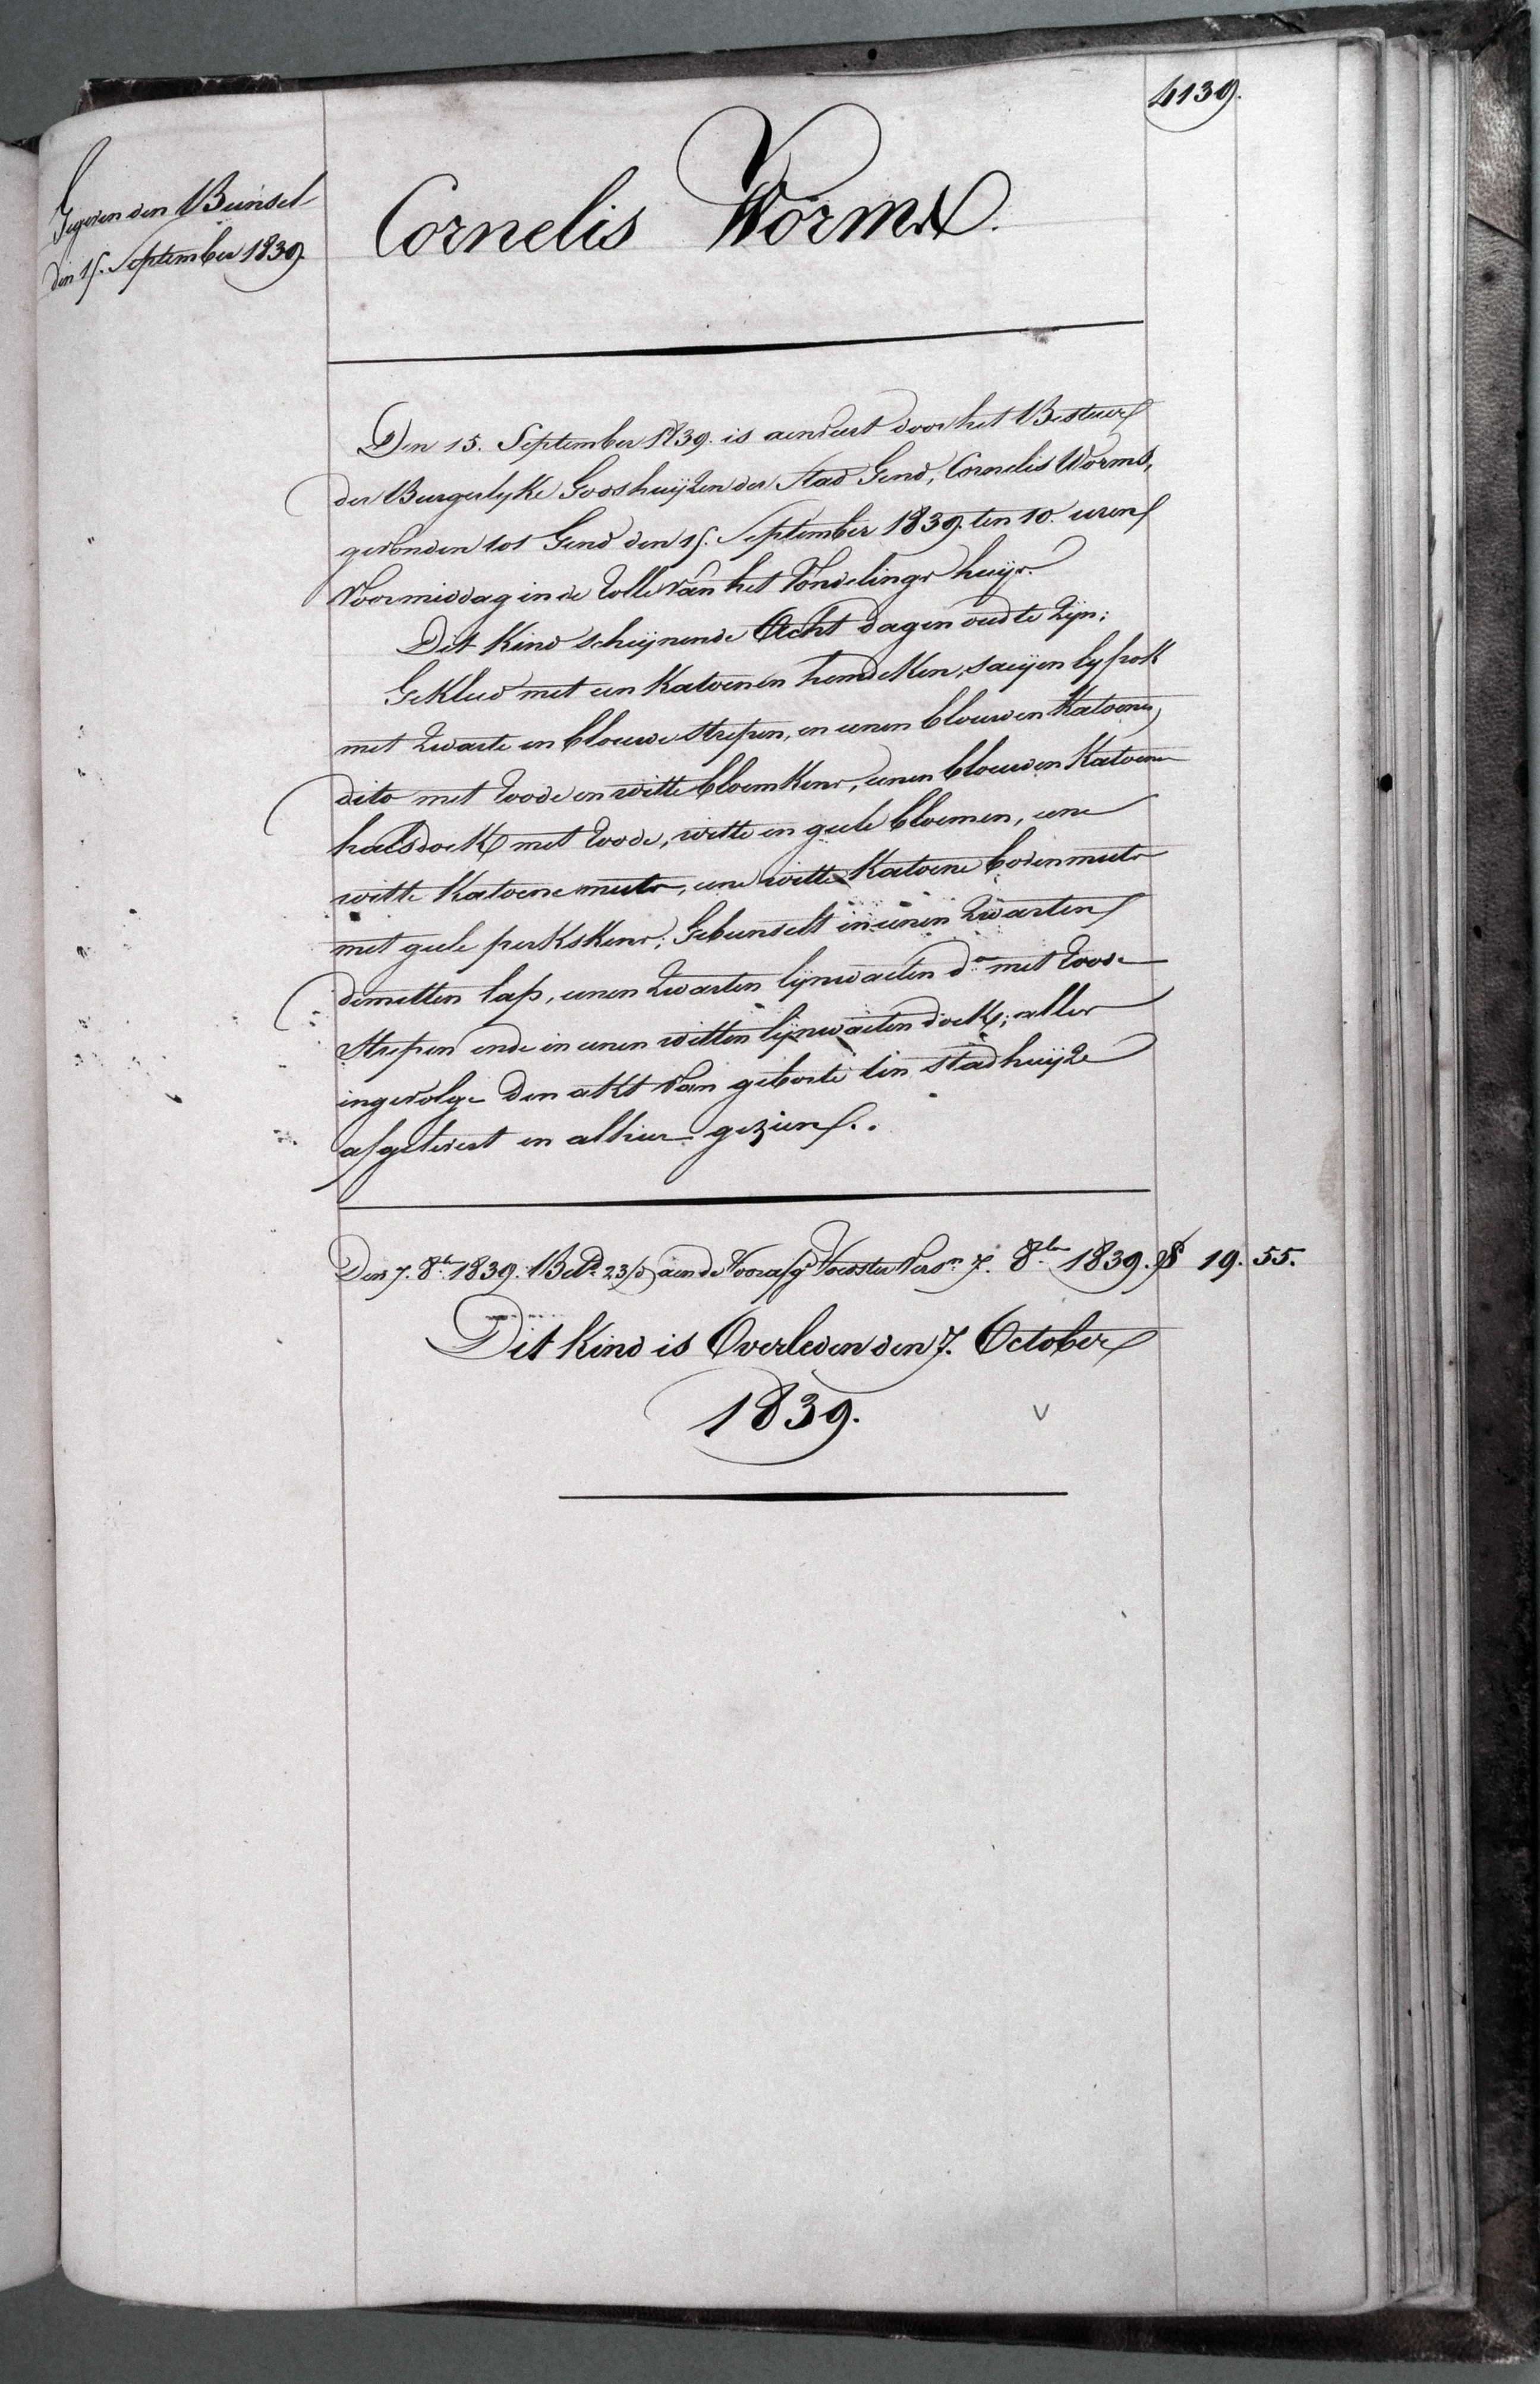 4139.
Gegeven den Bunsel
den 15. September 1839.
Cornelis Worms.
Den 15. September 1839. is aenveert door het Bestuer
der Burgerlyke Godshuijzen der Stad Gend, Cornelis Worms,
gevonden tot Gend den 15. September 1839. ten 10. uren
Voormiddag in de Rolle van het Vondelings huijs.
Dit Kind schijnende Acht dagen oud te zijn;
Gekleed met een Katoenen hemdeken, saeijen lyfrok
met zwarte en blouwe strepen, en eenen blouwen Katoenen
dito met roode en witte bloemkens, eenen blouwen Katoenen
halsdoek met roode, witte en geele bloemen, eene
witte Katoene muts, eene witte Katoene bovenmuts
met geele perkskens; Gebunselt in eenen zwarten
dimetten lap, eenen zwarten lijnwaeten do met roode
strepen ende in eenen witten lijnwaeten doek; alles
ingevolge den akt van geboorte ten stadhuijze
afgelevert en alhier gezien.
Den 7. 8ber 1839. Betd. 23/d aen de Voorafg. Voedster Verso. 7. 8ber 1839. f 19. 55.
Dit Kind is Overleden den 7. October
1839.